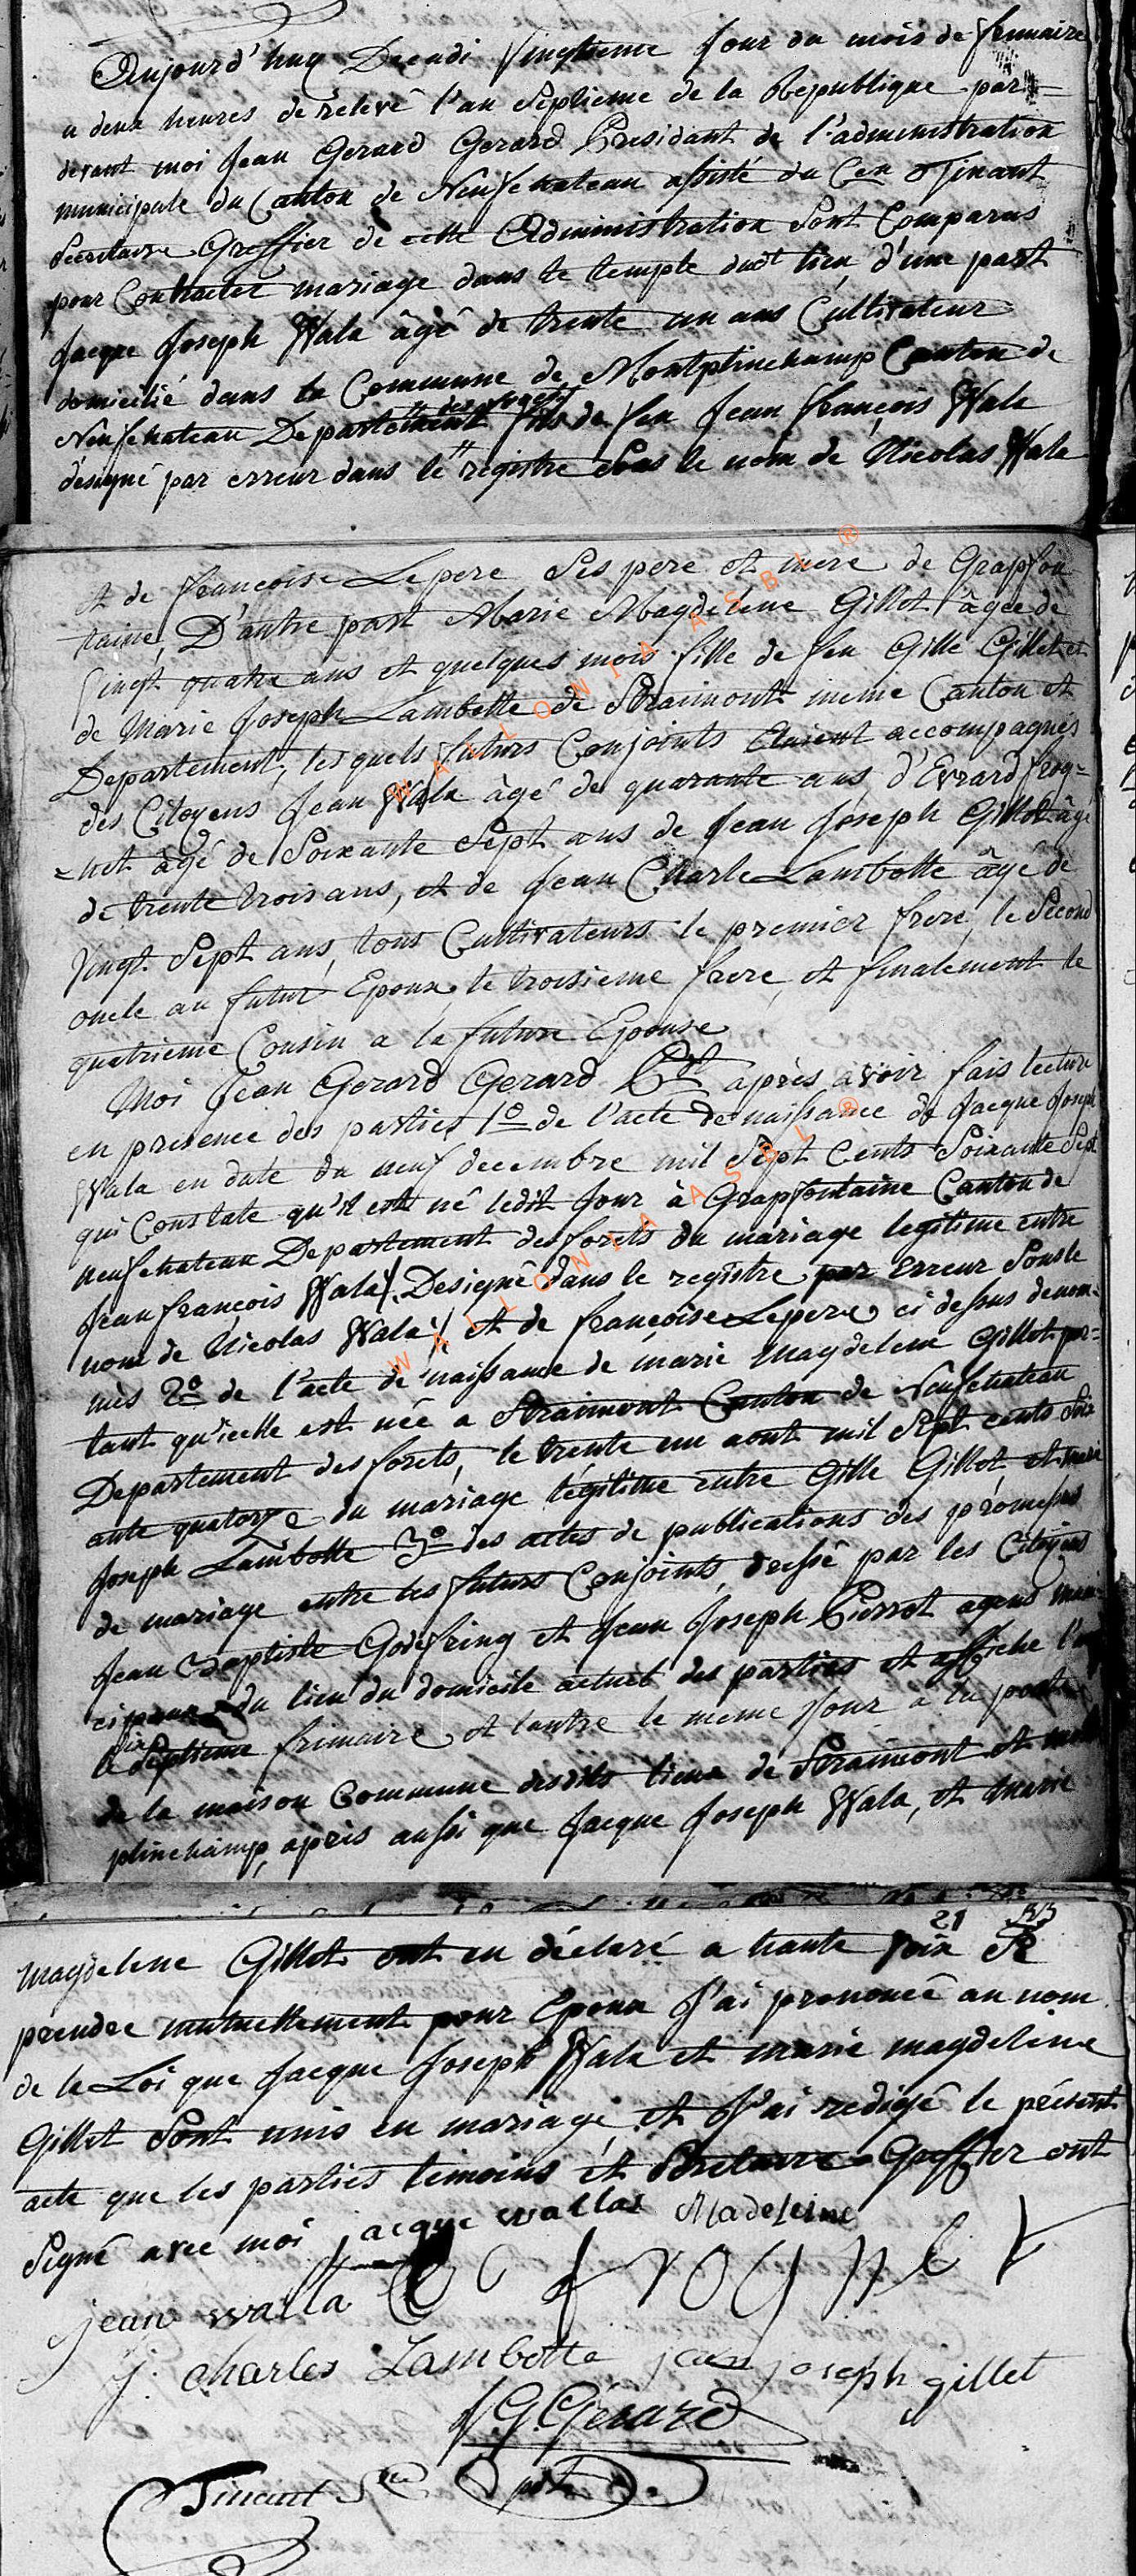 Aujourd'huy Decadi Vingtieme Jour du mois de frimaire
a deux heures de relevé l'an Septieme de la Republique par
devant moi Jean Gerard Gerard Presidant de l'administration
municipale du Canton de Neufchateau assisté du Cen Tinant
Secretaire Greffier de cette Administration Sont Comparus
pour Contracter mariage dans le temple dudt lieu, d'une part
Jacque Joseph Wala âgé de trente un ans Cultivateur
domicilié dans la Commune de Montplinchamp Canton de
des forets
Neufchateau Departement fils de feu Jean François Wala
désigné par erreur dans le registre Sous le nom de Nicolas Wala
et de françoise Lepere Ses pere et mere de Grapfon
taine, D'autre part Marie Magdelene Gillet âgée de
Vingt quatre ans et quelques mois fille de feu Gille Gillet et
de Marie Joseph Lambotte de Straimont meme Canton et
Departement, les quels futurs Conjoints Etaient accompagnés
des Citoyens Jean Wala âgé de quarante ans, d'Evrard frog=
=net âgé de Soixante Sept ans de Jean Joseph Gillet âgé
de trente trois ans, et de Jean Charle Lambotte âgé de
Vingt Sept ans, tous Cultivateurs le premier frere, le Second
oncle au futur Epoux, le troisieme frere, et finalement le
quatrieme Cousin a la future Epouse
Moi Jean Gerard Gerard Pdt après avoir fais lecture
en presence des parties 1o de l'acte de naissance de Jacque Joseph
Wala en date du neuf decembre mil Sept Cents Soixante Sept
qui Constate qu'il est né ledit Jour à Grapfontaine Canton de
neufchateau Departement des forets du mariage legitime entre
Jean françois Wala (Designé dans le registre par Erreur Sous le
nom de Nicolas Wala) et de françoise Lepere ci dessus denom=
més 2o de l'acte de naissance de marie Magdelene Gillet por=
tant qu'icelle est née a Straimont Canton de Neufchateau
Departement des forets, le trente un aout mil Sept cents Soix
ante quatorze du mariage légitime entre Gille Gillet, et marie
Joseph Lambotte 3o des actes de publications des promesses
de mariage entre les futurs Conjoints, dressé par les Citoyens
Jean Baptiste Godefring et Jean Joseph Pierrot agens muni
cipaux du lieu du domicile actuel des parties et affiché l'un
le Septieme frimaire et l'autre le meme Jour a la porte
de la maison Commune desdits lieux de Straimont et mont
plinchamp, après aussi que Jacque Joseph Wala, et Marie
21
Magdelene Gillet ont eu déclaré a haute voix Se
prendre mutuellement pour Epoux J'ai prononcé au nom
de la Loi que Jacque Joseph Wala et marie magdelene
Gillet Sont unis en mariage, et J'ai redigé le présent
acte que les parties temoins et Secretaire Greffier ont
Signé avec moi. jacque wallas Madeleine
jean walla frognet
j: charles Lambotte jean joseph gillet
J. G. Gérard
Tinant Sre pdt
WALLONIA ASBL ®
WALLONIA ASBL ®